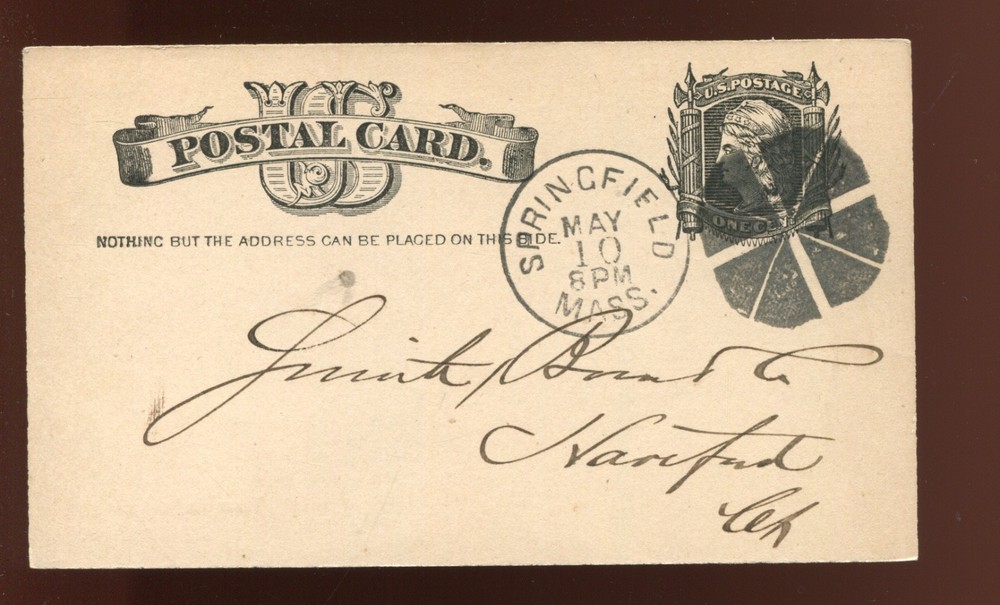 US
POSTAL CARD.
U.S. POSTAGE
ONE CENT
NOTHING BUT THE ADDRESS CAN BE PLACED ON THIS SIDE.
SPRINGFIELD
MAY
10
8 PM
MASS.
Smith, & Co
Hartford
Ct